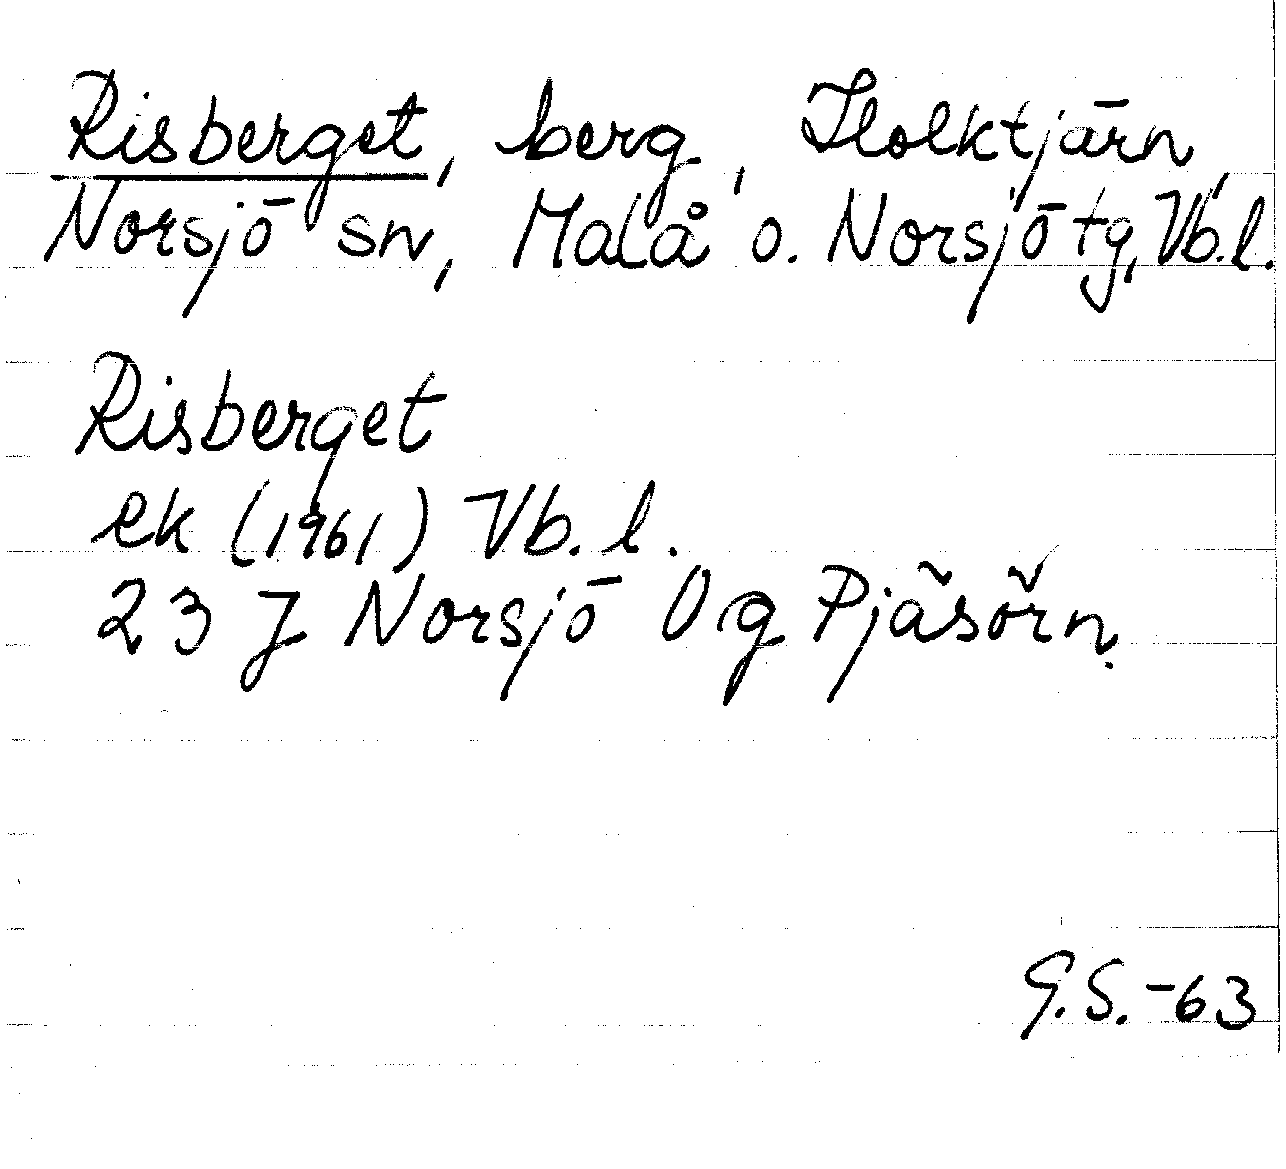 Risberget, berg, Holktjärn
Norsjö sn, Malå o. Norsjö tg, Vb.l.
Risberget
ek (1961) Vb. l.
23 J Norsjö Og Pjäsörn.
G.S.-63